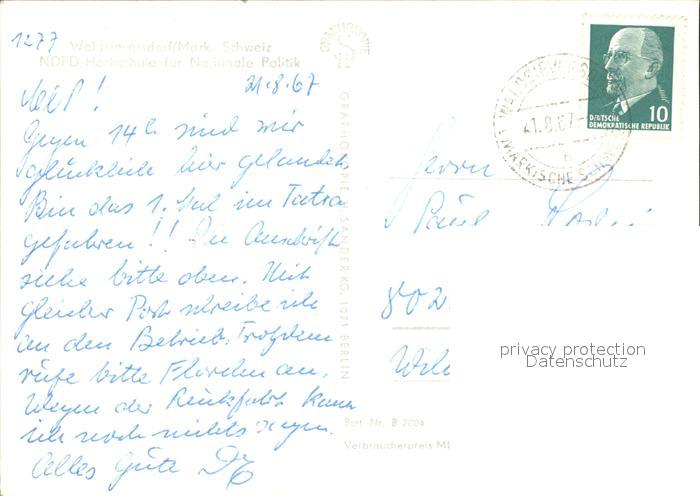 1277 Waldsieversdorf/Märk. Schweiz
NDPD-Hochschule für Nationale Politik
21.8.67
Gegen 14h sind wir
glücklich hier gelandet.
Bin das 1. Mal im Tatra
gefahren!! Die Anschrift
siehe bitte oben. Mit
gleicher Post schreibe ich
an den Betrieb. Trotzdem
rufe bitte an.
Wegen der Rückfahrt kann
ich noch nichts sagen.
Alles Gute
GRAPHOKOPIE
GRAPHOKOPIE H. SANDER KG, 1071 BERLIN
Best.-Nr. B 2004
Verbraucherpreis M
WALDSIEVERSDORF
21.8.67
b
(MÄRKISCHE SCHWEIZ)
10
DEUTSCHE
DEMOKRATISCHE REPUBLIK
Herrn
Paul
802
privacy protection
Datenschutz